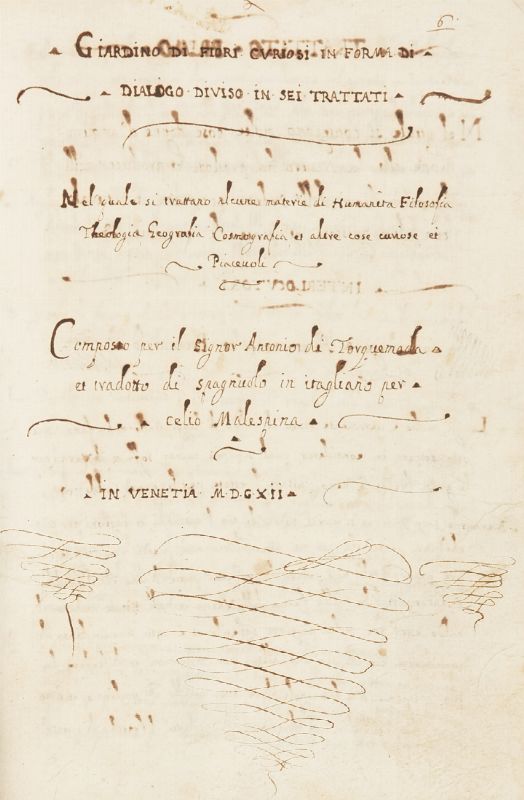 6
GIARDINO DI FIORI CVRIOSI IN FORMA DI
DIALOGO DIVISO IN SEI TRATTATI
Nel quale si trattano alcune materie di Humanita Filosofia
Theologia Geografia Cosmografia et altre cose curiose et
Piacevoli
Composto per il signor Antonio di Torquemada
et tradotto di spagnuolo in itagliano per
celio Malespina
IN VENETIA M.D.CXII